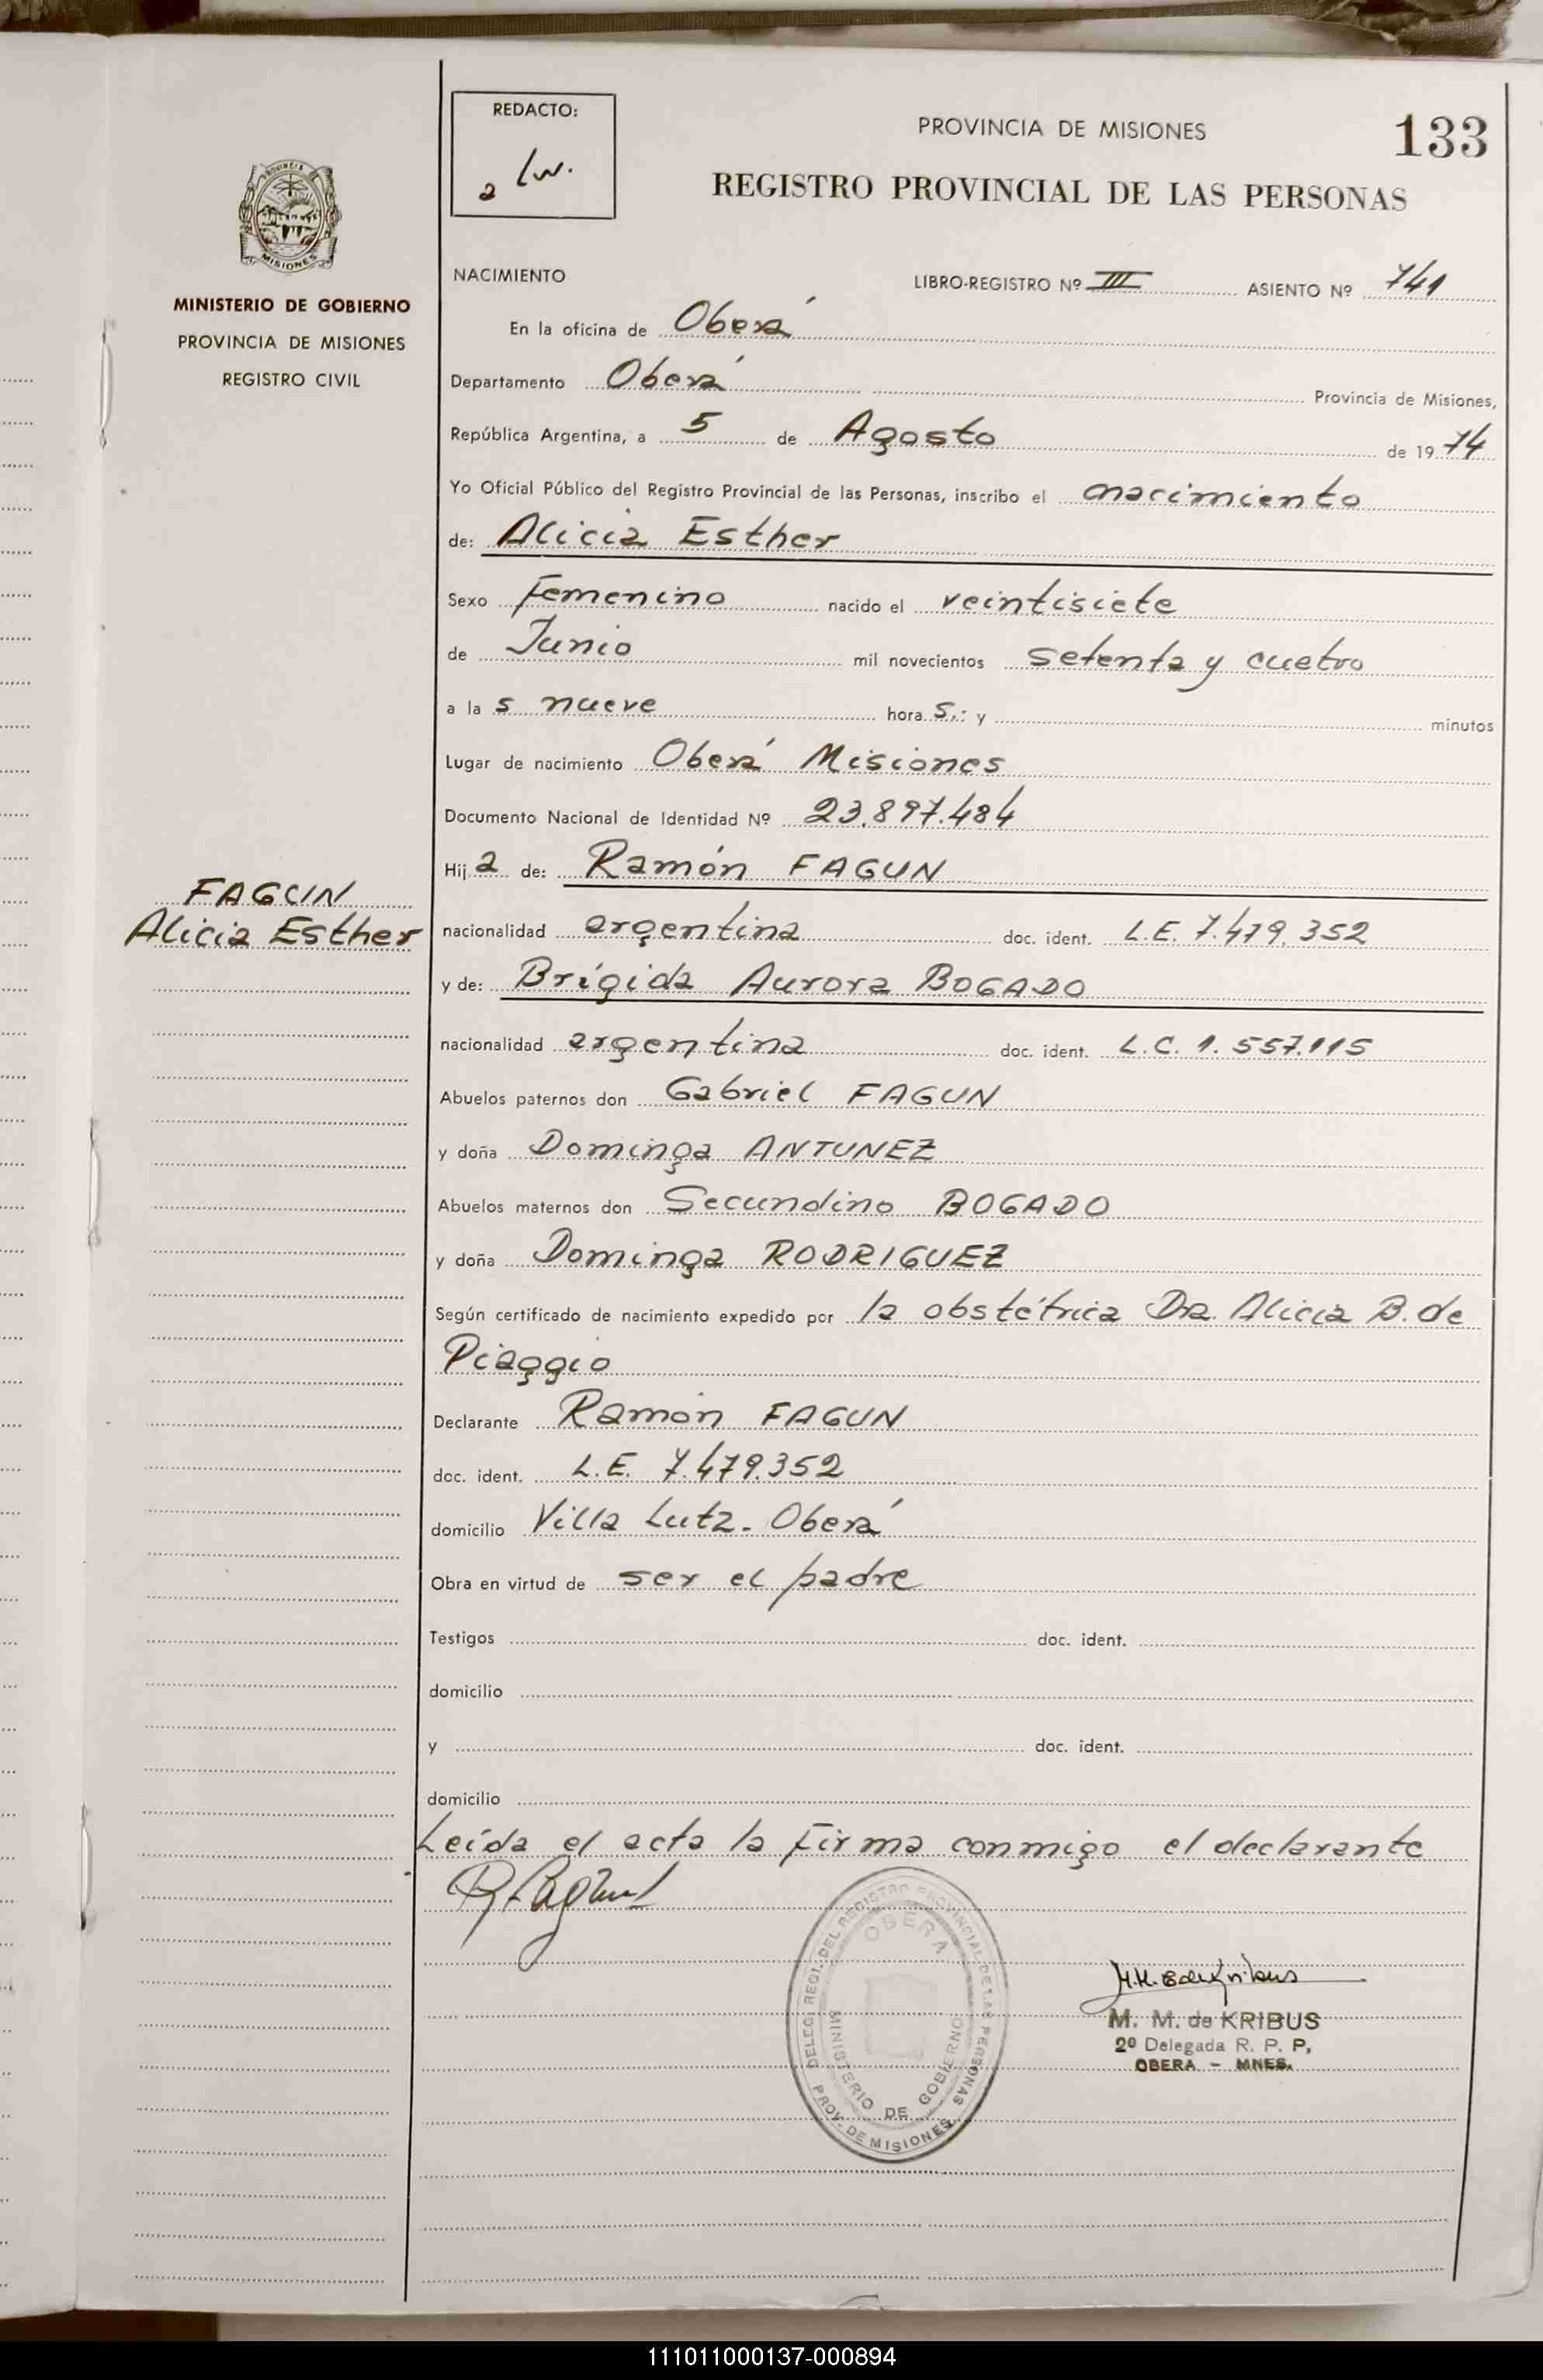 REDACTO:
a lw.
PROVINCIA DE MISIONES
133
REGISTRO PROVINCIAL DE LAS PERSONAS
PROVINCIA
MISIONES
MINISTERIO DE GOBIERNO
PROVINCIA DE MISIONES
REGISTRO CIVIL
NACIMIENTO LIBRO-REGISTRO Nº III ASIENTO Nº 741
En la oficina de Oberá
Departamento Oberá Provincia de Misiones,
República Argentina, a 5 de Agosto de 1974
Yo Oficial Público del Registro Provincial de las Personas, inscribo el nacimiento
de: Alicia Esther
Sexo Femenino nacido el veintisiete
de Junio mil novecientos setenta y cuatro
a la s nueve hora s.: y minutos
Lugar de nacimiento Oberá Misiones
Documento Nacional de Identidad Nº 23.897.484
Hija de: Ramón FAGUN
FAGUN
Alicia Esther
nacionalidad argentina doc. ident. L.E. 7.479.352
y de: Brígida Aurora BOGADO
nacionalidad argentina doc. ident. L.C. 1.557.115
Abuelos paternos don Gabriel FAGUN
y doña Dominga ANTUNEZ
Abuelos maternos don Secundino BOGADO
y doña Dominga RODRIGUEZ
Según certificado de nacimiento expedido por la obstétrica Dra. Alicia B. de
Piaggio
Declarante Ramón FAGUN
doc. ident. L.E. 7.479.352
domicilio Villa Lutz - Oberá
Obra en virtud de ser el padre
Testigos doc. ident.
domicilio
y doc. ident.
domicilio
Leída el acta la firma conmigo el declarante
R. Fagun
DELEG. REGI. DEL REGISTRO PROVINCIAL DE LAS PERSONAS
OBERA
MINISTERIO DE GOBIERNO
PROV. DE MISIONES
M. M. de Kribus
M. M. de KRIBUS
2º Delegada R. P. P.
OBERA - MNES.
111011000137-000894